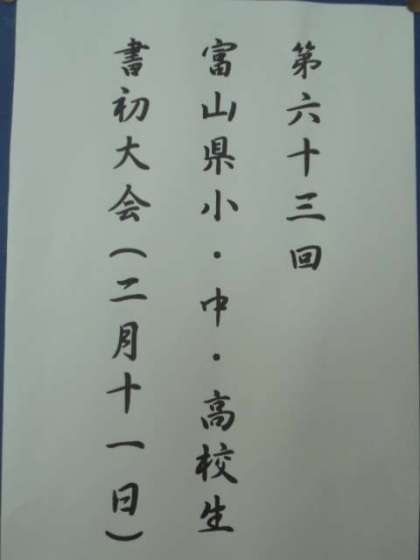 第六十三回
富山県小・中・高校生
書初大会(二月十一日)